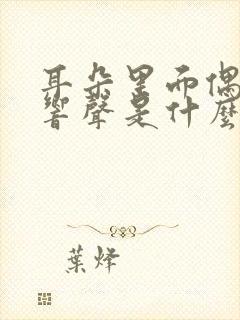 耳朵里而偶
響聲是什麼
葉烽